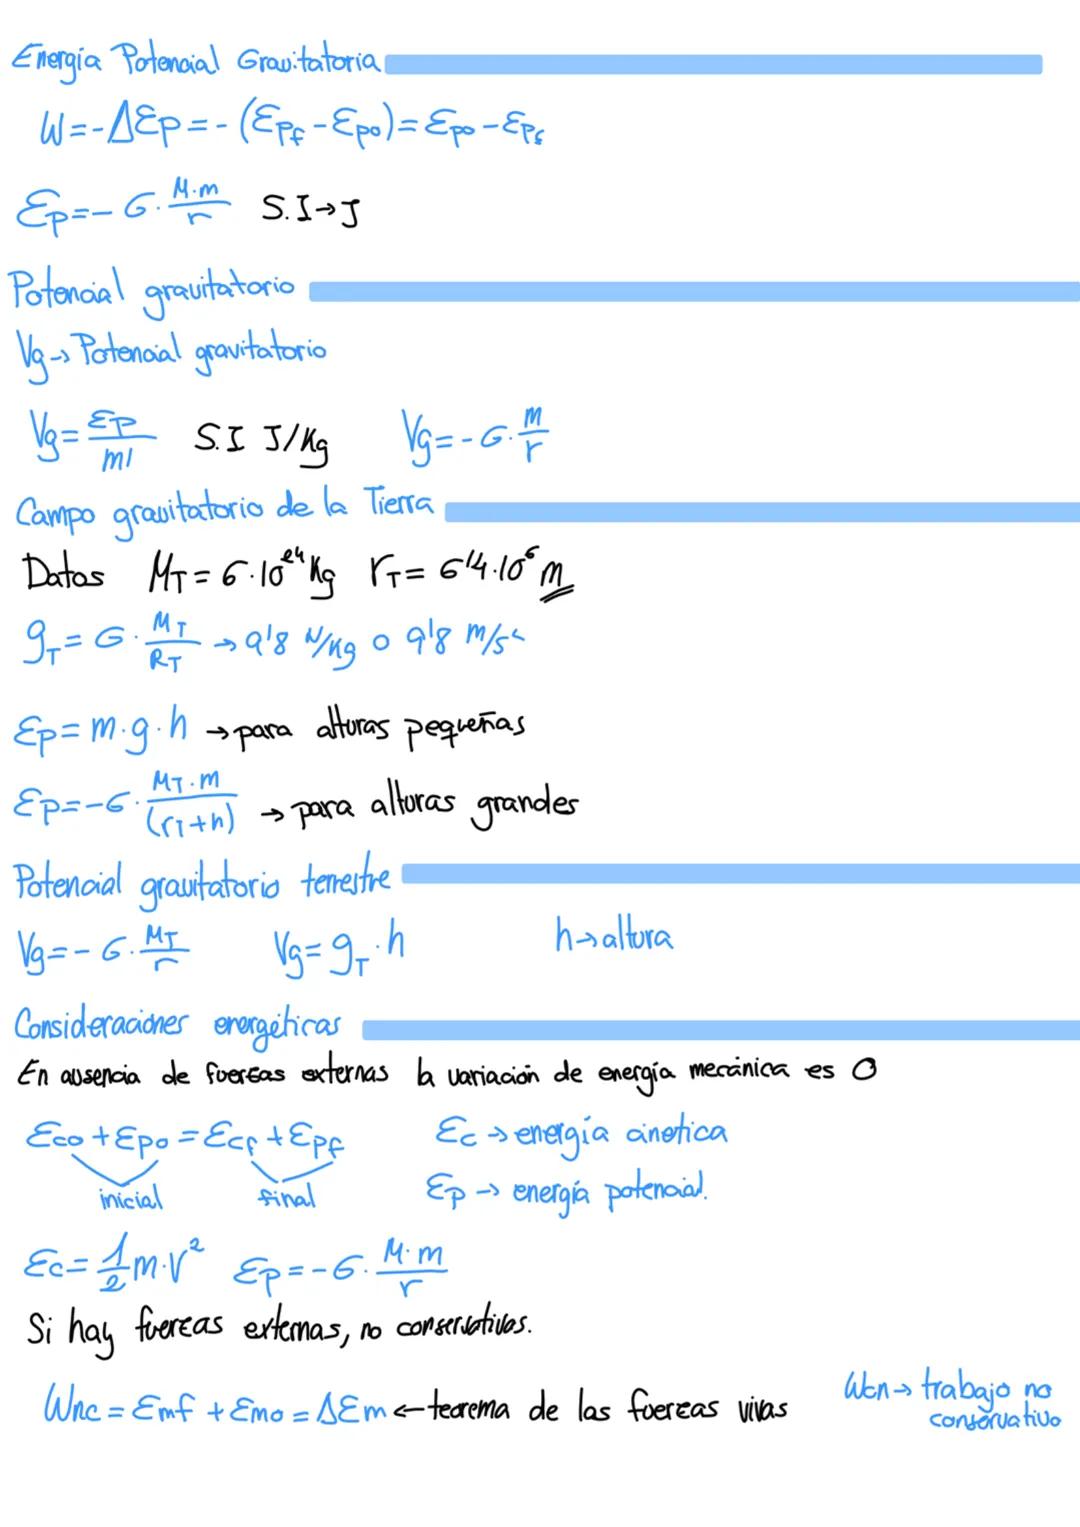 Energía Potencial Gravitatoria
W=-ΔEp=-(Epf-Epo)=Epo-Epf
Ep=-G·M·m/r S.I→J
Potencial gravitatorio
Vg→Potencial gravitatorio
Vg=Ep/m' S.I J/Kg Vg=-G·M/r
Campo gravitatorio de la Tierra
Datos M_T=6·10²⁴Kg r_T=6'4·10⁶m
g_T=G·M_T/R_T→9'8 N/Kg o 9'8 m/s²
Ep=m·g·h→para alturas pequeñas
Ep=-G·M_T·m/(r_T+h)→para alturas grandes
Potencial gravitatorio terrestre
Vg=-G·M_T/r Vg=g_T·h h→altura
Consideraciones energéticas
En ausencia de fuerzas externas la variación de energía mecánica es 0
Eco+Epo=Ecf+Epf Ec→energía cinetica
inicial final Ep→energía potencial.
Ec=1/2m·V² Ep=-G·M·m/r
Si hay fuerzas externas, no conservativas.
Wnc=Emf+Emo=ΔEm←teorema de las fuerzas vivas Wcn→trabajo no
conservativo